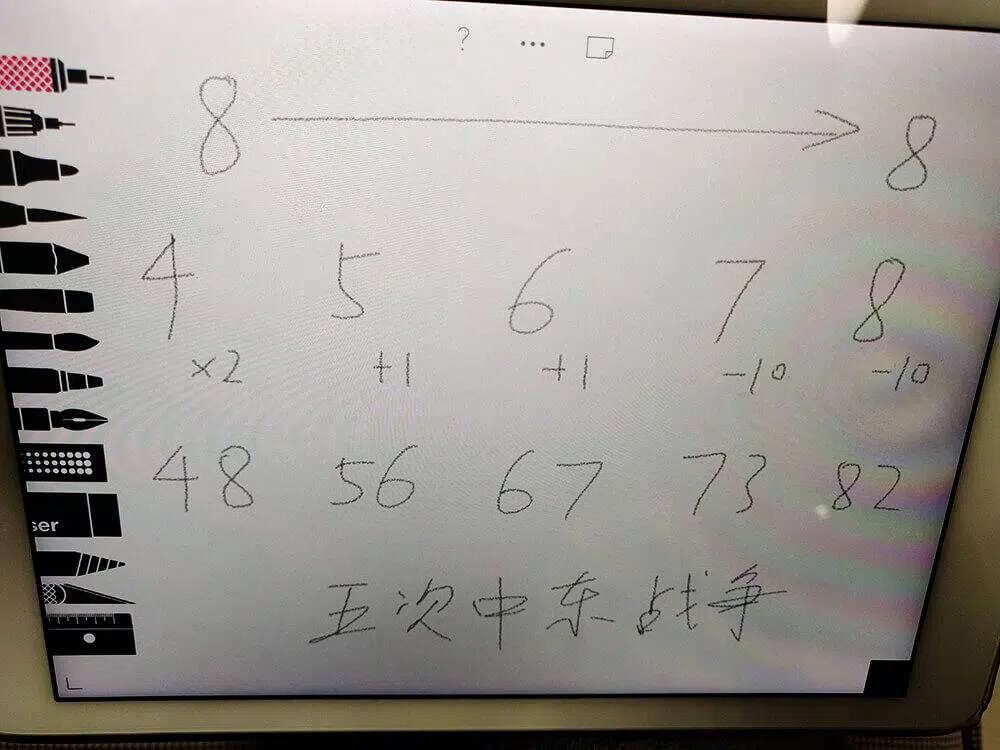 ? ...
8 → 8
4 5 6 7 8
×2 +1 +1 -10 -10
48 56 67 73 82
ser
五次中东战争